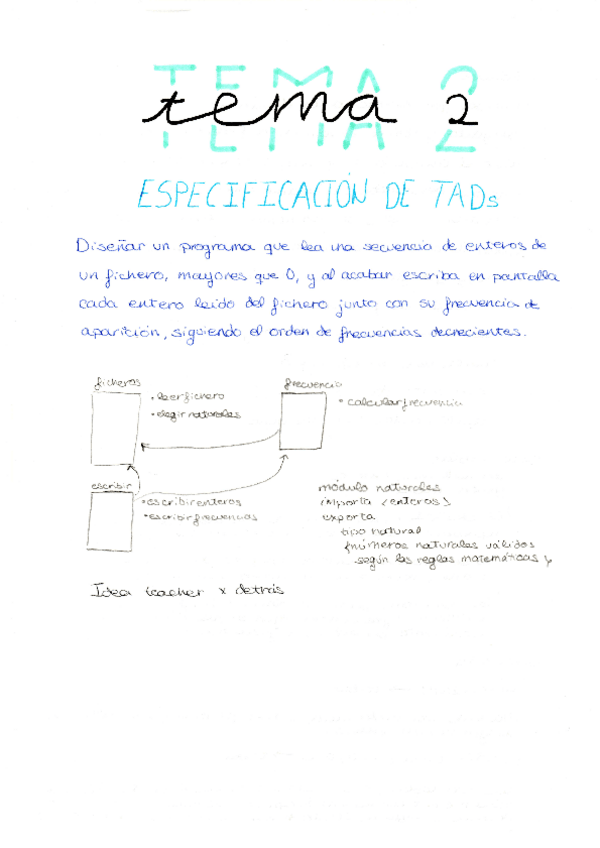 TEMA 2
tema 2
ESPECIFICACIÓN DE TADs
Diseñar un programa que lea una secuencia de enteros de
un fichero, mayores que 0, y al acabar escriba en pantalla
cada entero leído del fichero junto con su frecuencia de
aparición, siguiendo el orden de frecuencias decrecientes.
ficheros
• leerfichero
• elegirnaturales
frecuencia
• calcularfrecuencia
escribir
• escribirenteros
• escribirfrecuencias
módulo naturales
importa {enteros}
exporta
tipo natural
{números naturales válidos
según las reglas matemáticas}
Idea teacher x detrás